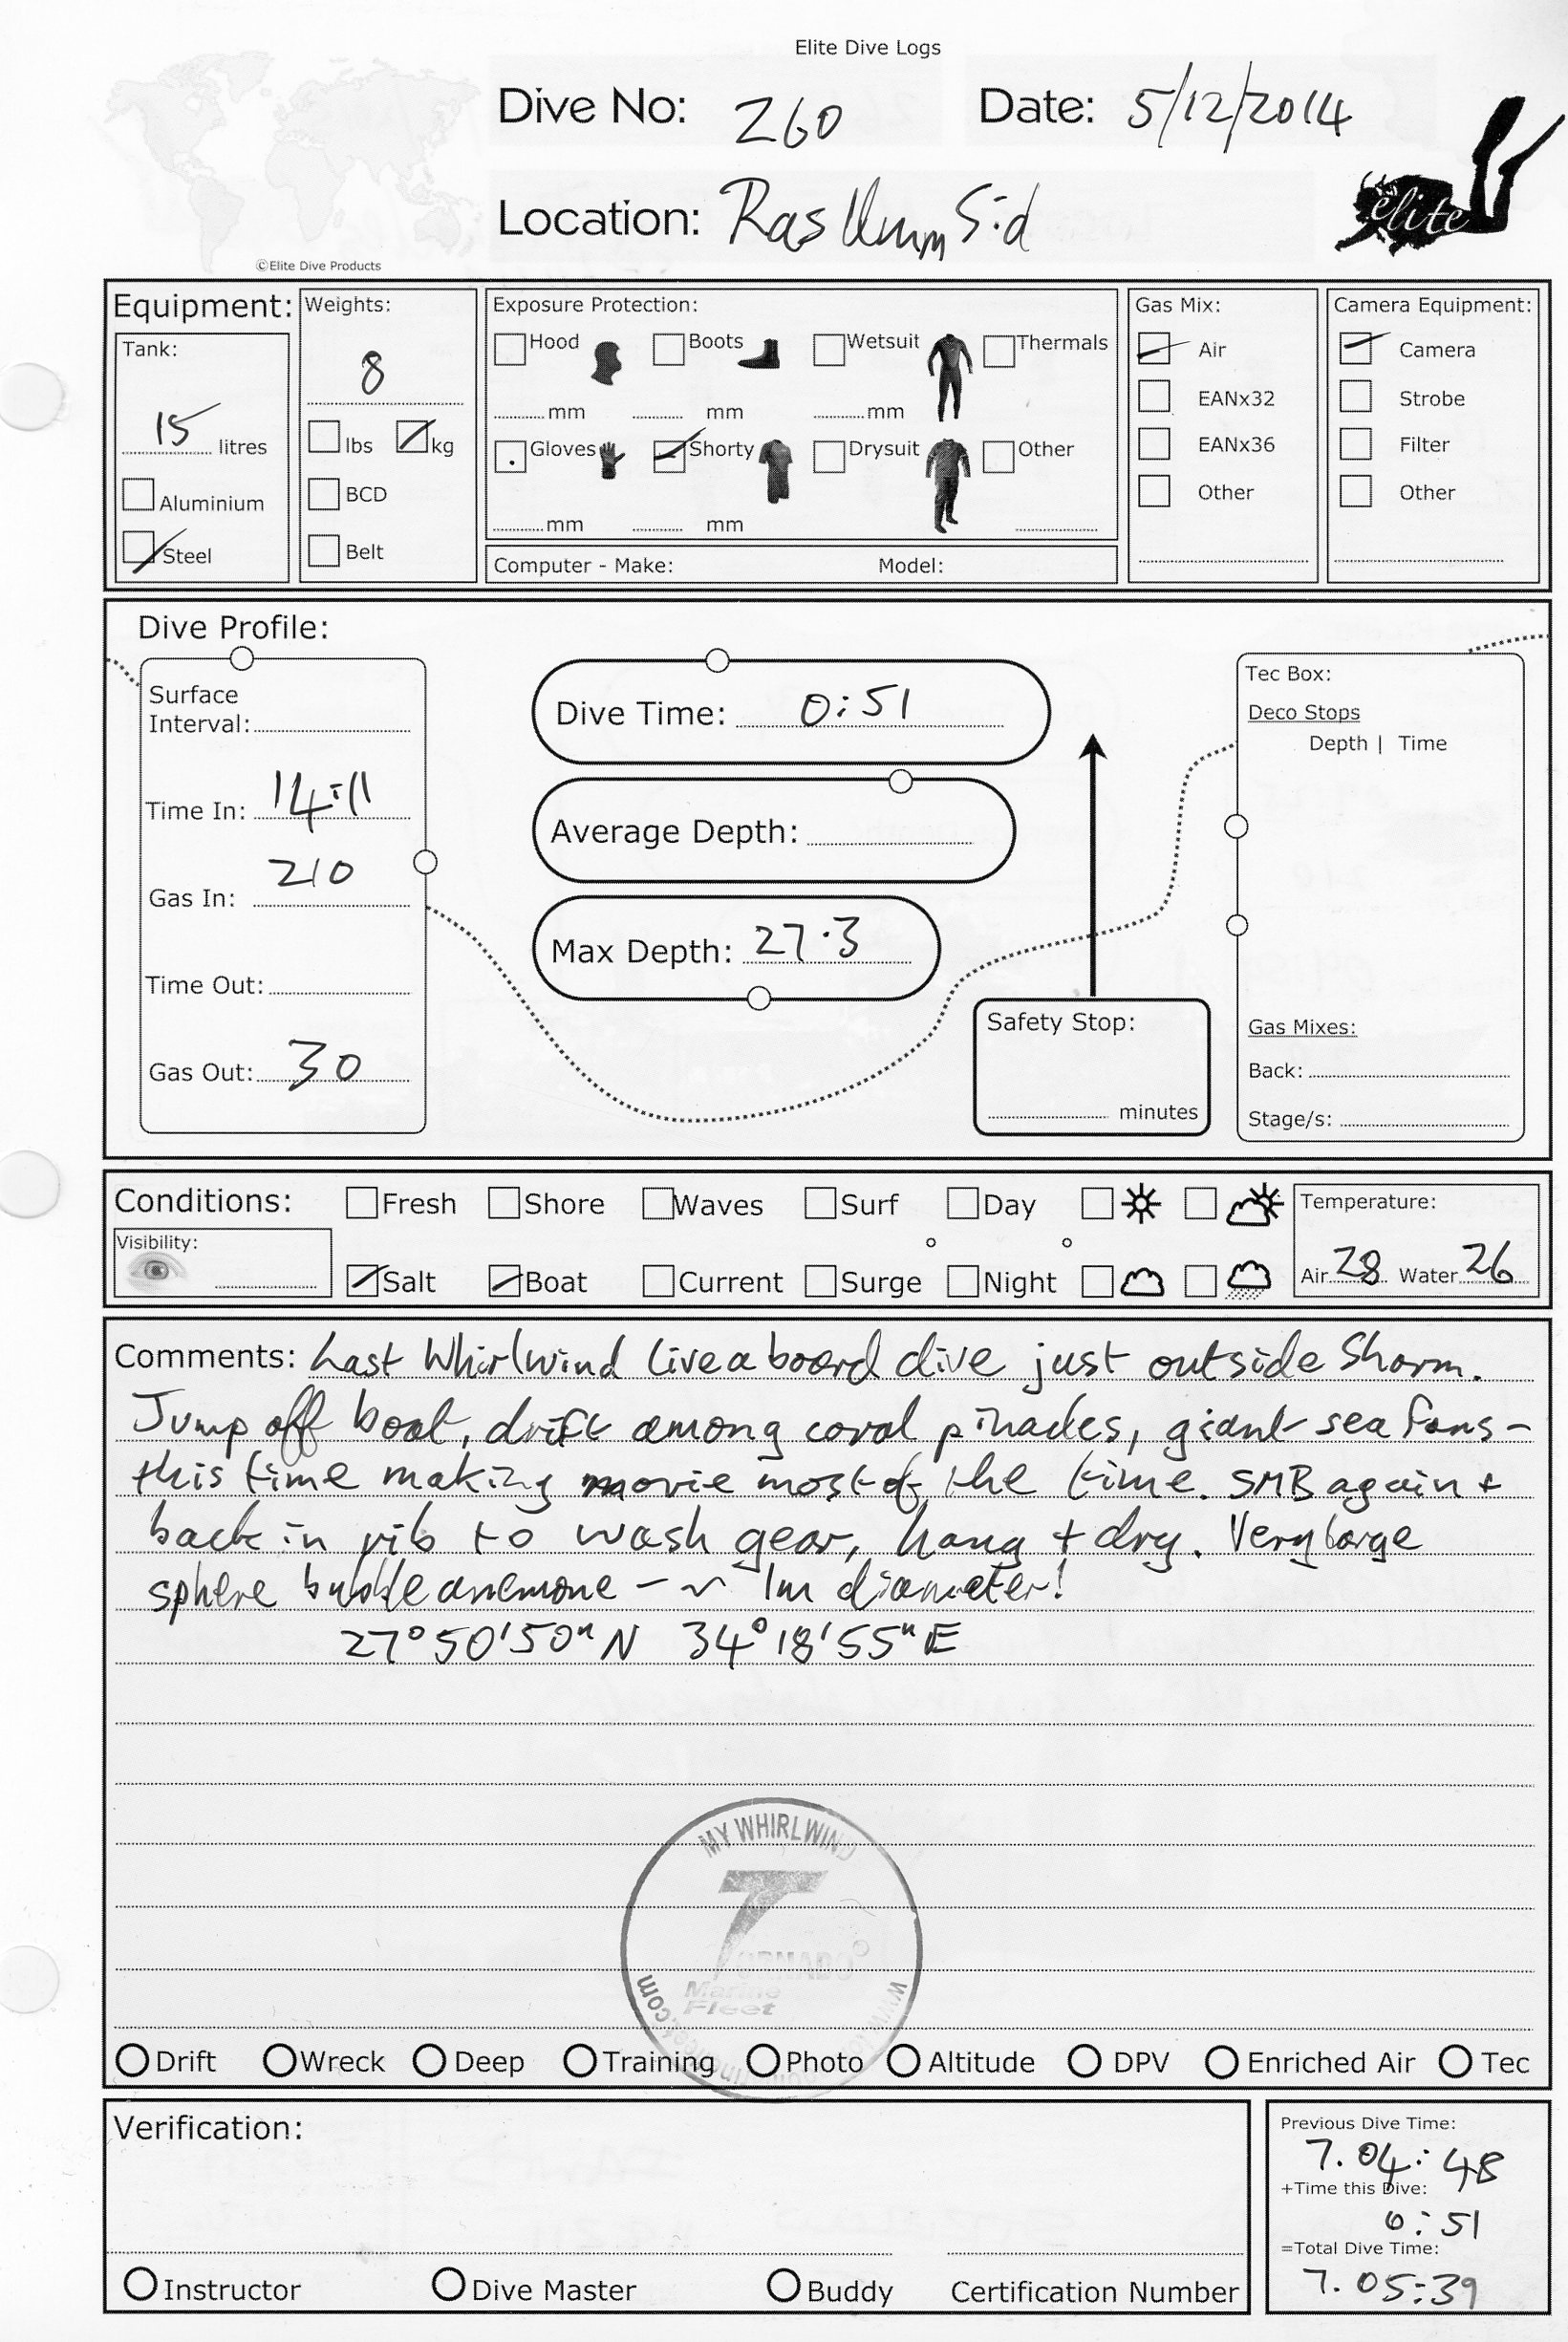 Elite Dive Logs
Dive No: 260 Date: 5/12/2014
Location: Ras Umm Sid
elite
©Elite Dive Products
Equipment:
Tank:
15 litres
Aluminium
Steel
Weights:
8
lbs kg
BCD
Belt
Exposure Protection:
Hood Boots Wetsuit Thermals
mm mm mm
Gloves Shorty Drysuit Other
mm mm
Computer - Make: Model:
Gas Mix:
Air
EANx32
EANx36
Other
Camera Equipment:
Camera
Strobe
Filter
Other
Dive Profile:
Surface
Interval:
Time In: 14:11
Gas In: 210
Time Out:
Gas Out: 30
Dive Time: 0:51
Average Depth:
Max Depth: 27.3
Safety Stop:
minutes
Tec Box:
Deco Stops
Depth | Time
Gas Mixes:
Back:
Stage/s:
Conditions: Fresh Shore Waves Surf Day
Visibility:
Salt Boat Current Surge Night
Temperature:
Air 28 Water 26
Comments: Last Whirlwind liveaboard dive just outside Sharm.
Jump off boat, drift among coral pinacles, giant sea fans -
this time making movie most of the time. SMB again +
back in rib to wash gear, hang + dry. Very large
sphere bubble anemone - ~ 1m diameter!
27°50'50" N 34°18'55" E
MY WHIRLWIND
TORNADO
Marine
Fleet
Drift Wreck Deep Training Photo Altitude DPV Enriched Air Tec
Verification:
Instructor Dive Master Buddy Certification Number
Previous Dive Time:
7.04:48
+Time this Dive:
0:51
=Total Dive Time:
7.05:39